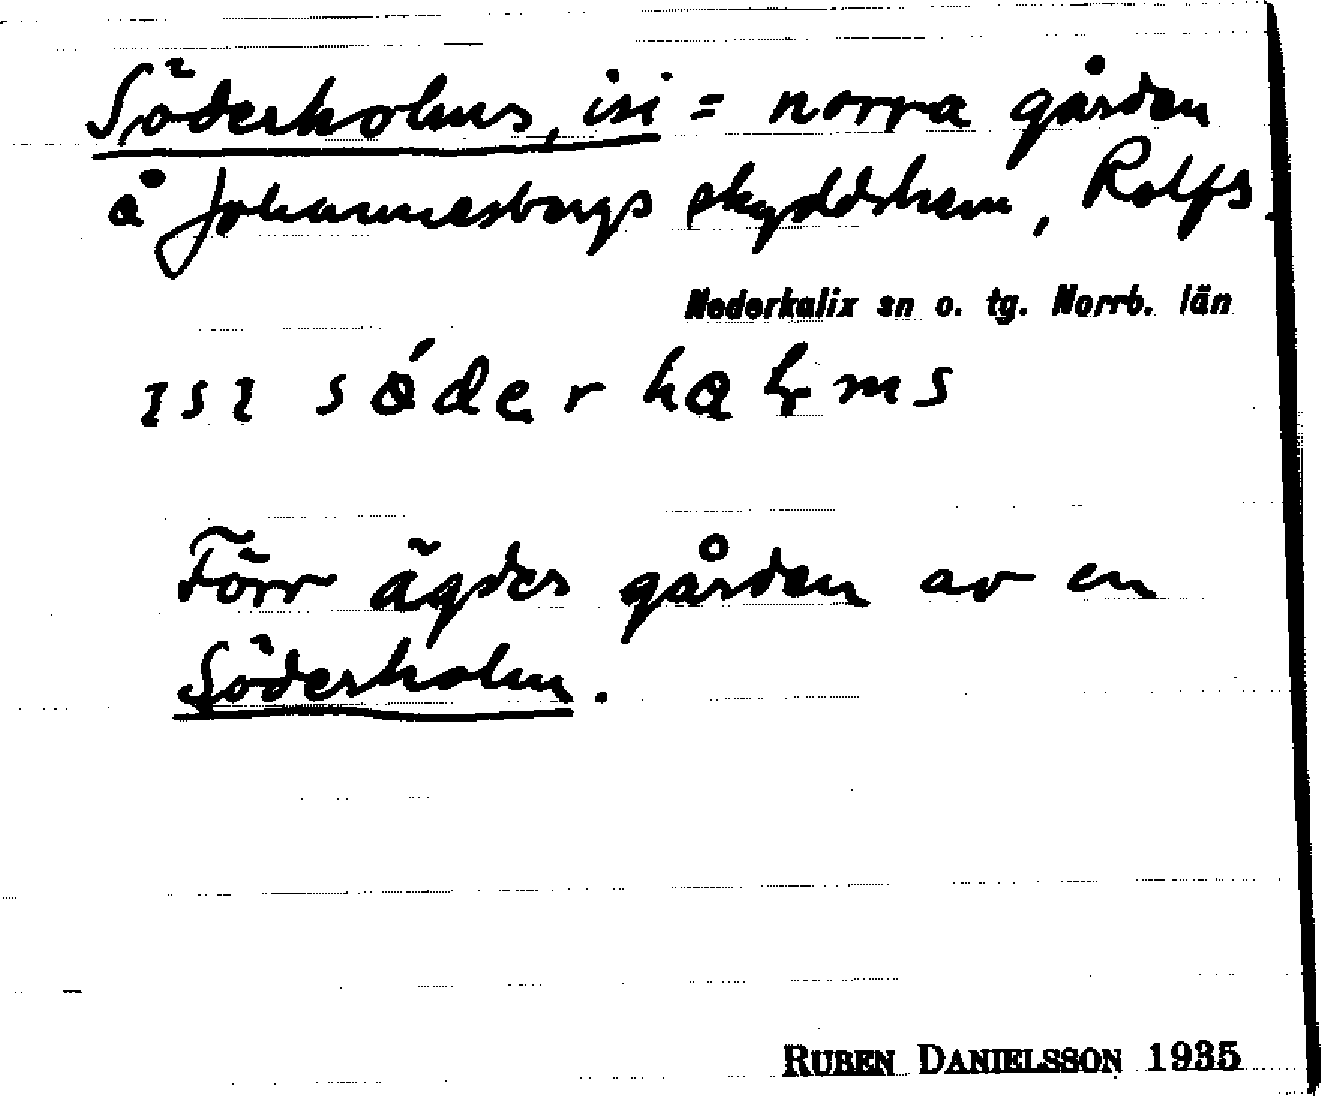 Söderholms, isi = norra gården
å Johannesbergs skyddshem, Rolfs.
Nederkalix sn o. tg. Norrb. län
ısı södɐr hɑɬms
Förr ägdes gården av en
Söderholm.
RUBEN DANIELSSON 1935